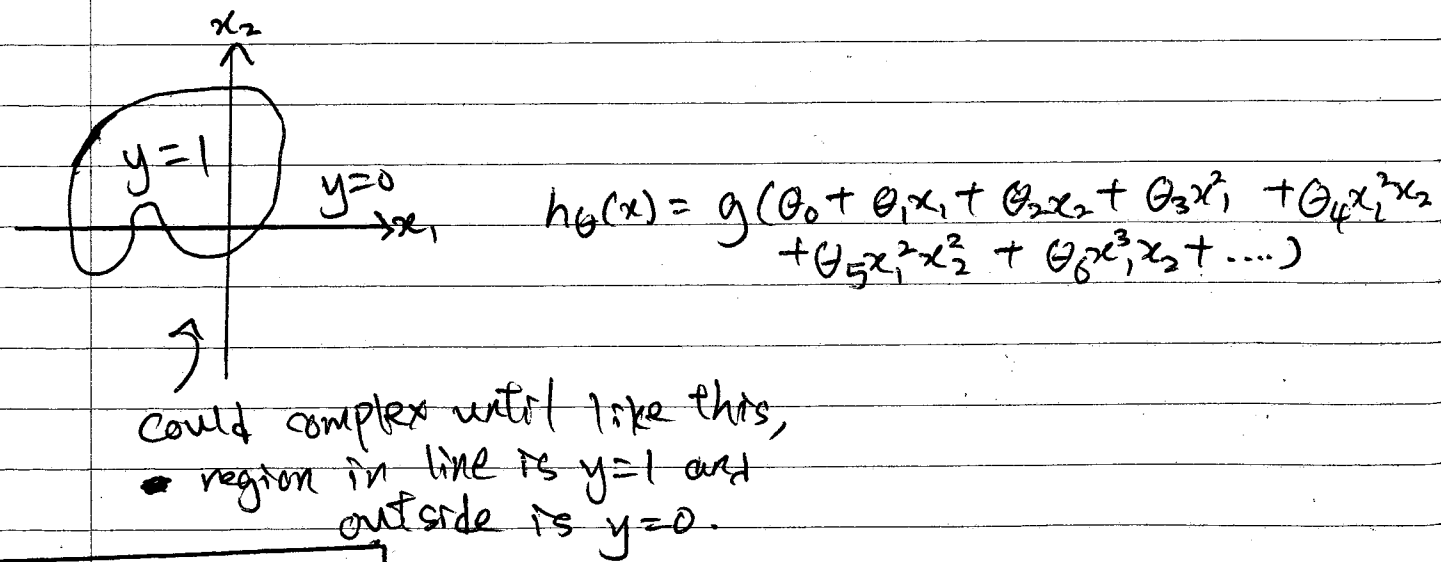 x₂
y=1
y=0
x₁
h_θ(x) = g(θ₀ + θ₁x₁ + θ₂x₂ + θ₃x₁² + θ₄x₁²x₂
+ θ₅x₁²x₂² + θ₆x₁³x₂ + ....)
could complex until like this,
region in line is y=1 and
outside is y=0.